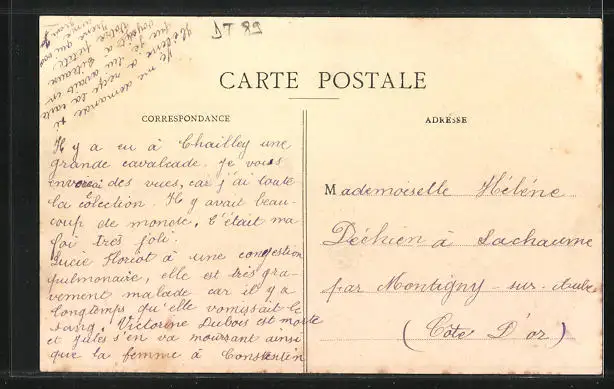 DT 89
CARTE POSTALE
CORRESPONDANCE
ADRESSE
Il y a eu à Chailley une
grande cavalcade. Je vous
enverrai des vues, car j'ai toute
la colection. Il y avait beau-
coup de monde, c'était ma
foi très joli.
Lucie Horiot à une congestion
pulmonaire, elle est très gra-
vement malade car il y a
longtemps qu'elle vomissait le
sang. Victorine Dubois est morte
et Jules s'en va mourrant ainsi
que la femme à Constentin
Je me demande si
tu as reçu la carte
que je
Mademoiselle Hélène
Déchien à Lachaume
par Montigny-sur-Aube
(Côte D'or)